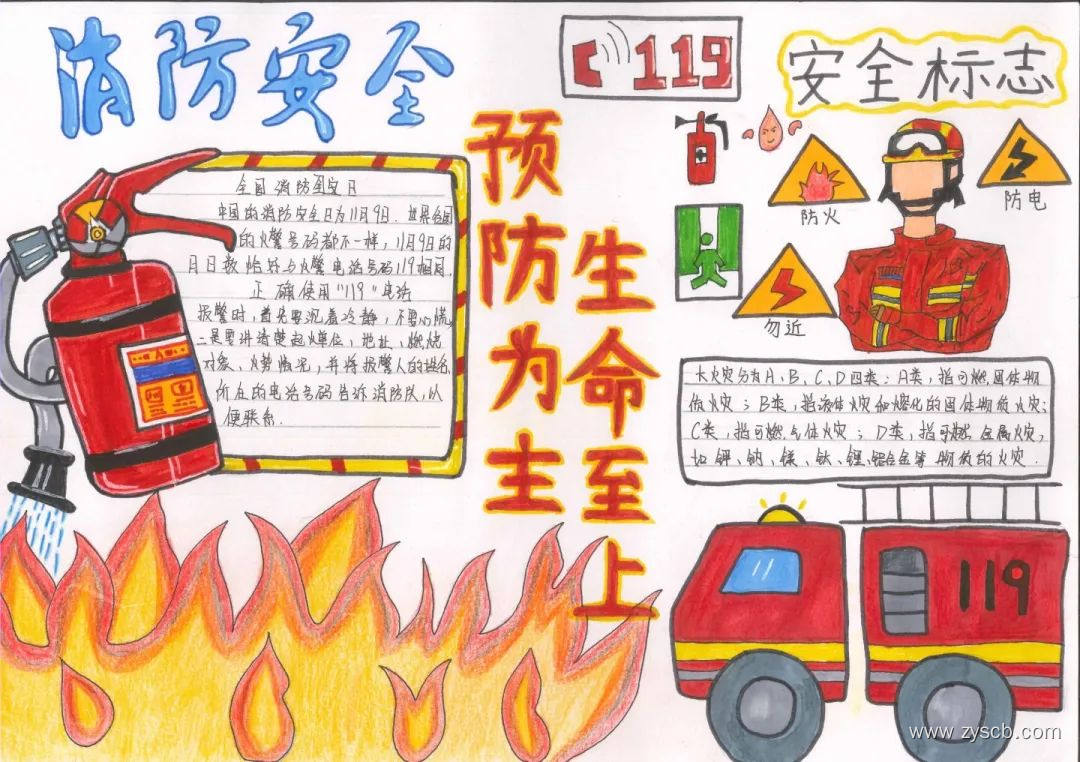 消防安全
119
安全标志
预防为主
生命至上
全国消防安全日
中国的消防安全日为11月9日. 世界各国
的火警号码都不一样, 11月9日的
月日数恰好与火警电话号码119相同.
正确使用"119"电话
报警时, 首先要沉着冷静, 不要心慌,
二是要讲清楚起火单位, 地址、燃烧
对象、火势情况, 并将报警人的姓名
所在的电话号码告诉消防队, 以
便联系.
防火
防电
勿近
火灾分为A、B、C、D四类: A类, 指可燃固体物
质火灾; B类, 指液体火灾和熔化的固体物质火灾;
C类, 指可燃气体火灾; D类, 指可燃金属火灾,
如钾、钠、镁、钛、锂、铝合金等物质的火灾.
119
www.zyscb.com